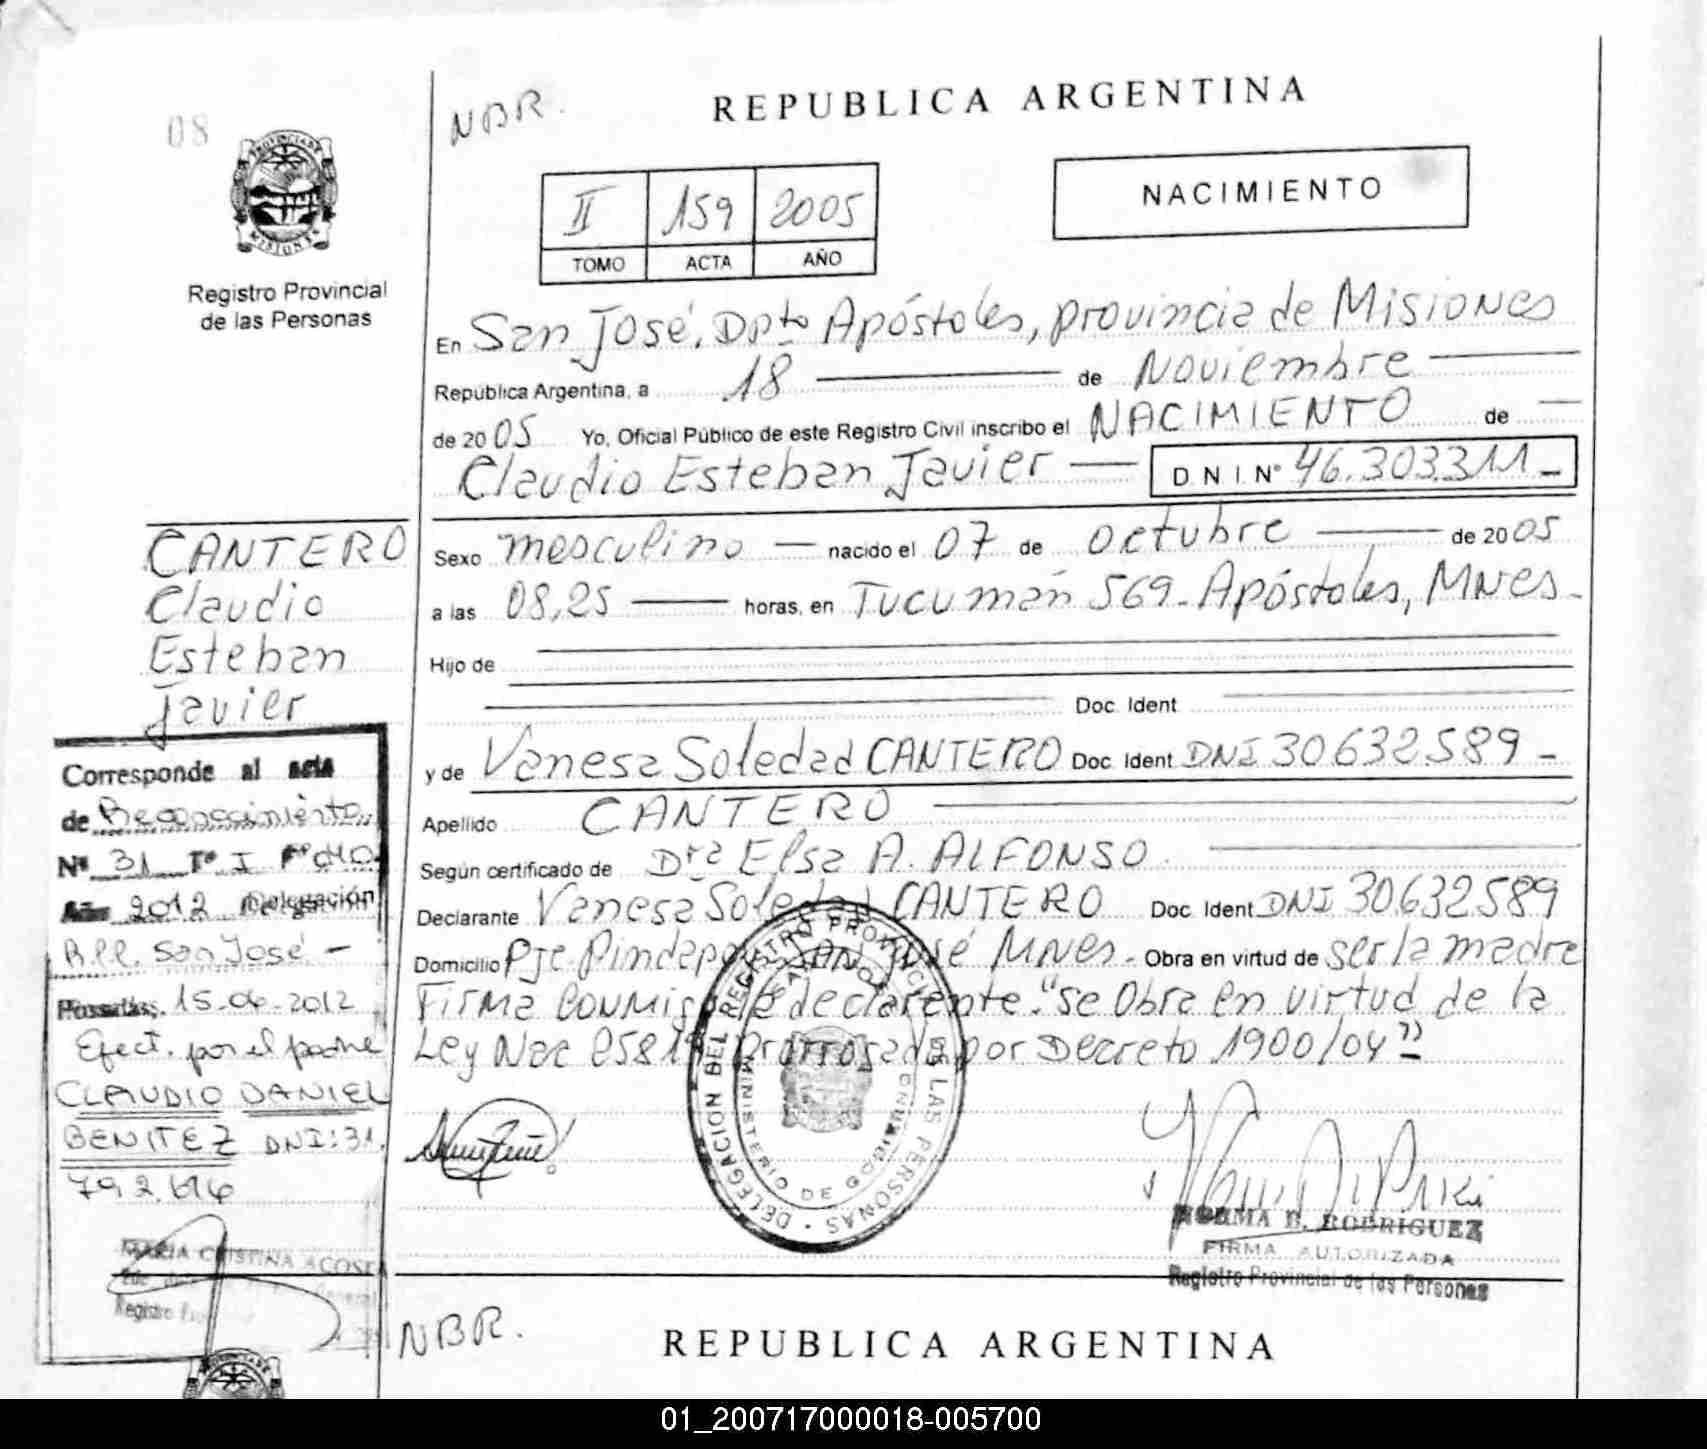 08
NBR.
REPUBLICA ARGENTINA
II 159 2005
TOMO ACTA AÑO
NACIMIENTO
PROVINCIA DE
MISIONES
Registro Provincial
de las Personas
En San José, Dpto Apóstoles, provincia de Misiones
República Argentina, a 18 de Noviembre
de 2005 Yo, Oficial Público de este Registro Civil inscribo el NACIMIENTO de
Claudio Esteban Javier D.N.I. N° 46.303.311
Sexo masculino nacido el 07 de octubre de 2005
a las 08,25 horas, en Tucumán 569 - Apóstoles, MNes.
Hijo de
Doc. Ident.
y de Vanesa Soledad CANTERO Doc. Ident. DNI 30632589
Apellido CANTERO
Según certificado de Dra Elsa A. ALFONSO
Declarante Vanesa Soledad CANTERO Doc. Ident. DNI 30.632.589
Domicilio Pje. José MNes. Obra en virtud de ser la madre
Firma conmigo la declarente. "se Obra en virtud de la
Ley Nac prorrogada por Decreto 1900/04"
CANTERO
Claudio
Esteban
Javier
Corresponde al acta
de Reconocimiento
N° 31 T° I F° 040
Año 2012 Delegación
R.P.P. San José -
Posadas, 15-06-2012
Efect. por el padre
CLAUDIO DANIEL
BENITEZ DNI: 31.
792.616
MARIA CRISTINA ACOSTA
DELEGACION DEL REGISTRO PROVINCIAL DE LAS PERSONAS
MINISTERIO DE GOBIERNO
SAN JOSE
NORMA B. RODRIGUEZ
FIRMA AUTORIZADA
Registro Provincial de las Personas
NBR.
REPUBLICA ARGENTINA
01_200717000018-005700